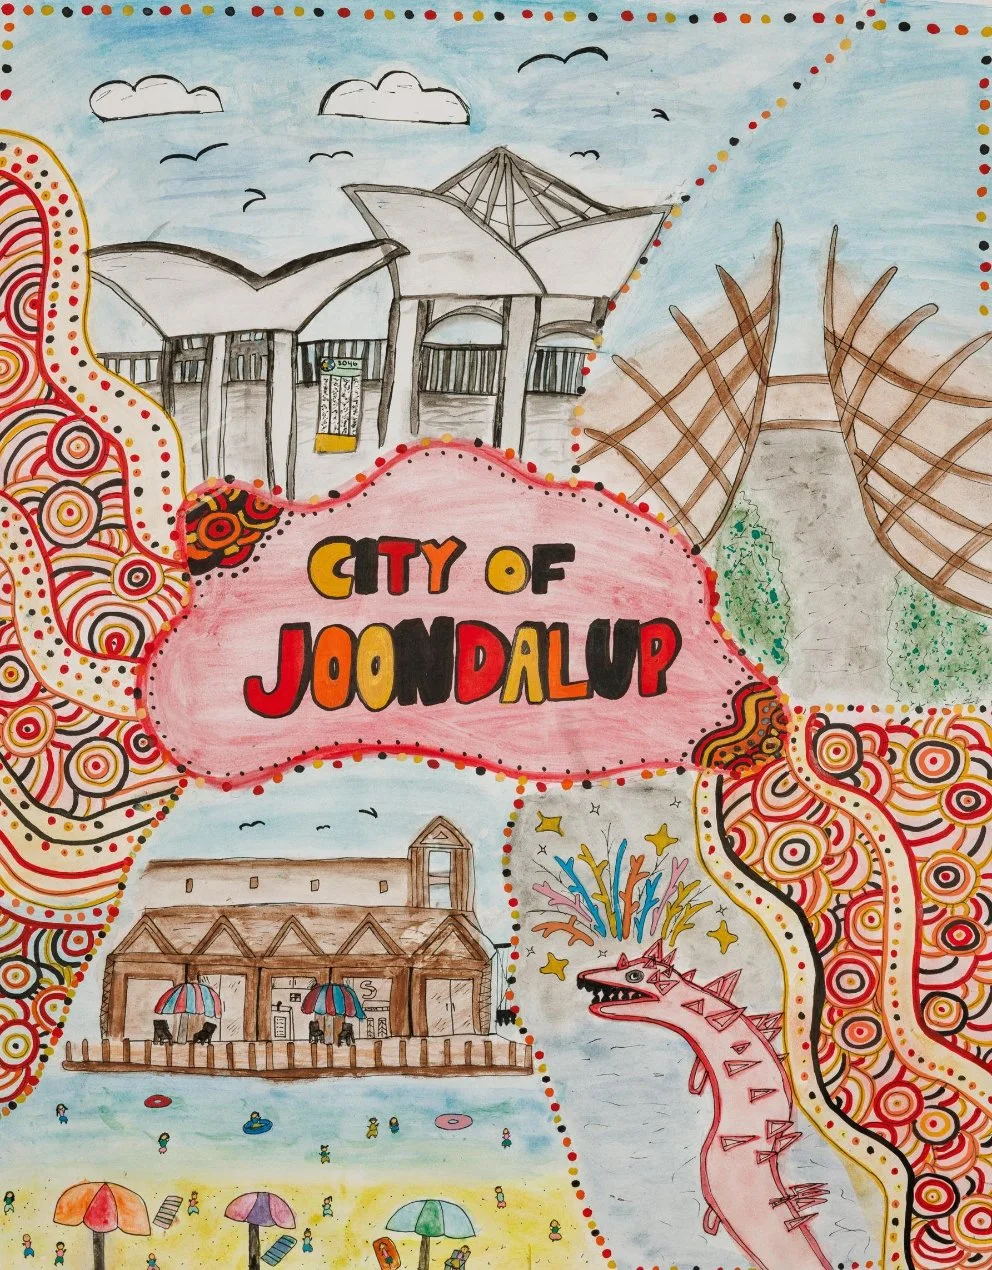 CITY OF
JOONDALUP
S